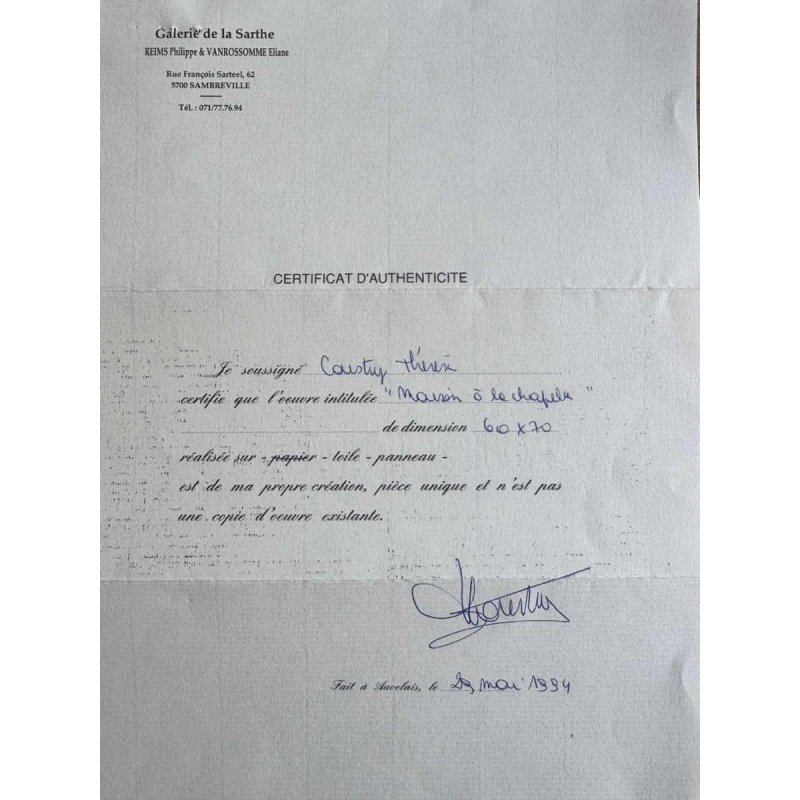 Galerie de la Sarthe
REIMS Philippe & VANROSSOMME Eliane
Rue François Sarteel, 62
5700 SAMBREVILLE
Tél. : 071/77.76.94
CERTIFICAT D'AUTHENTICITE
Je soussigné Coustry Thérèse
certifie que l'oeuvre intitulée "Maison à la chapelle"
de dimension 60x70
réalisée sur - papier - toile - panneau -
est de ma propre création, pièce unique et n'est pas
une copie d'oeuvre existante.
Fait à Auvelais, le mai 1994